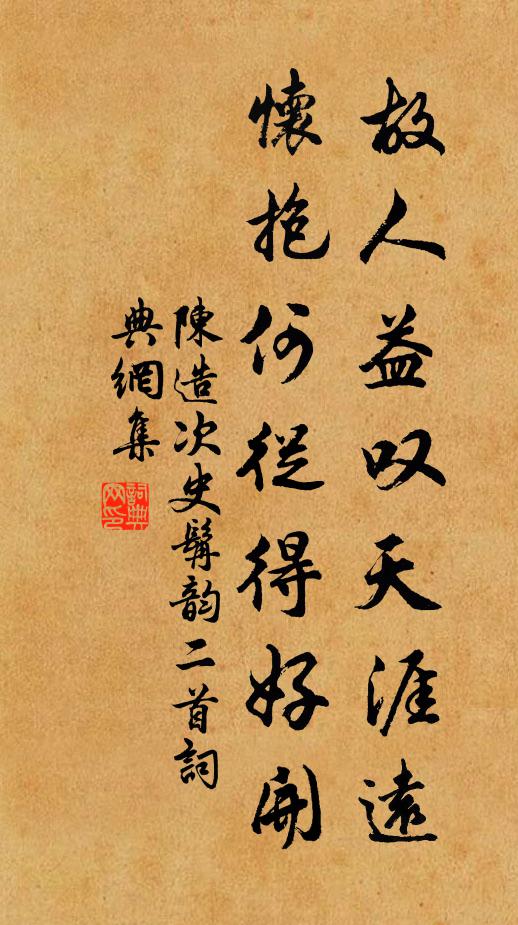 故人益叹天涯遠
懷抱何從得好開
陳造次史髯韵二首詞
典網集
詞典
网印